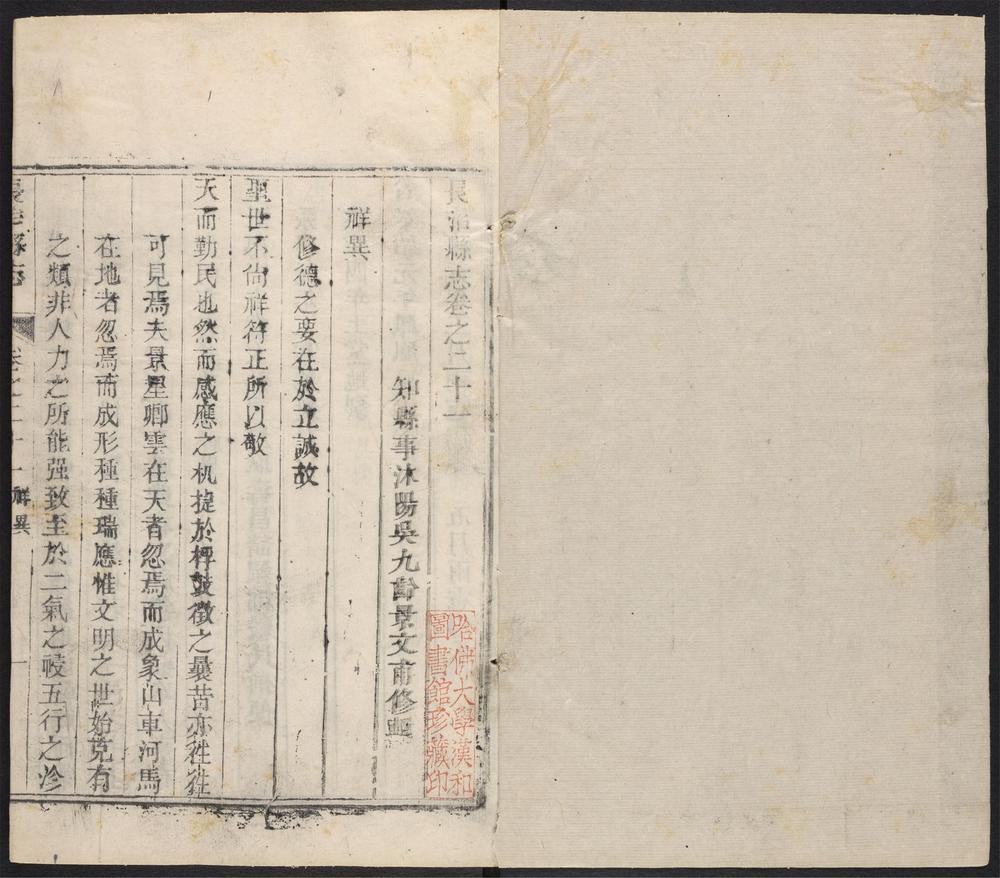 長治縣志卷之二十一
知縣事沭陽吳九齡景文甫修輯
祥異
修德之要在於立誠故
聖世不尚祥符正所以敬
天而勤民也然而感應之机捷於桴鼓徵之曩昔亦徃徃
可見焉夫景星卿雲在天者忽焉而成象山車河馬
在地者忽焉而成形種種瑞應惟文明之世始克有
之類非人力之所能强致至於二氣之祲五行之沴
長治縣志 卷之二十一 祥異 一
哈佛大學漢和
圖書館珍藏印